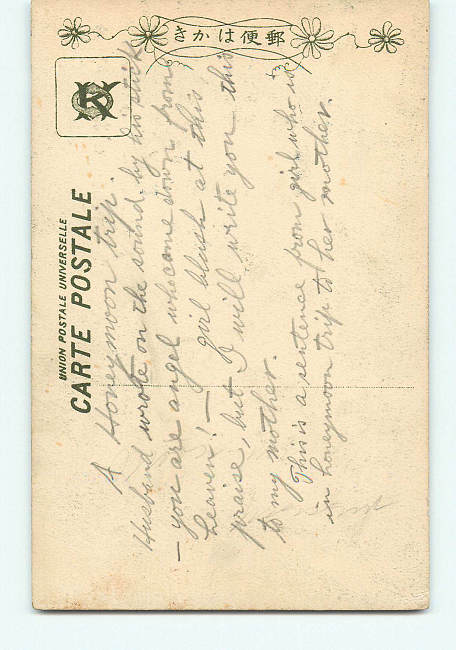 郵便はかき
UNION POSTALE UNIVERSELLE
CARTE POSTALE
A Honeymoon trip.
Husband wrote on the sound by his stick
— you are angel who came down from
heaven! — girl blush at this
praise, but I will write you this
to my mother.
This is a sentence from girl who is
in honeymoon trip to her mother.